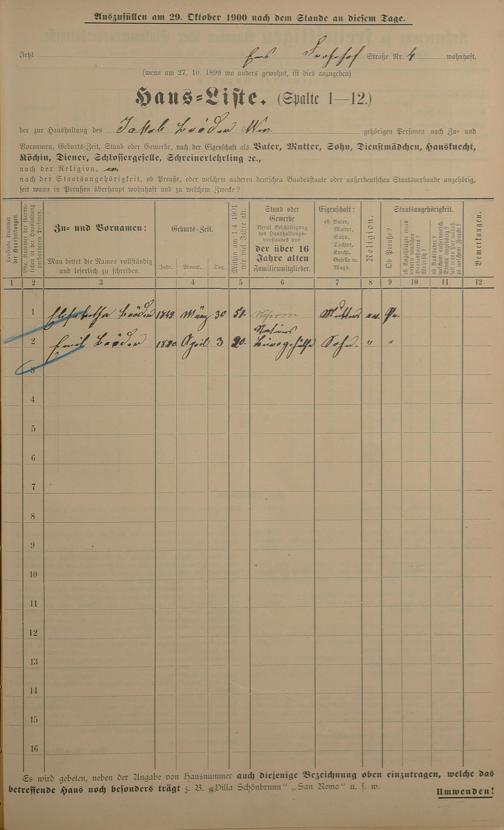 Auszufüllen am 29. Oktober 1900 nach dem Stande an diesem Tage.
Jetzt Ems Straße Nr. 4 wohnhaft.
(wenn am 27. 10. 1899 wo anders gewohnt, ist dies anzugeben)
Haus=Liste. (Spalte 1—12.)
der zur Haushaltung des Jakob Bröder Wwe gehörigen Personen nach Zu= und
Vornamen, Geburts=Zeit, Stand oder Gewerbe, nach der Eigenschaft als Vater, Mutter, Sohn, Dienstmädchen, Hausknecht,
Köchin, Diener, Schlossergeselle, Schreinerlehrling ꝛc.,
nach der Religion,
nach der Staatsangehörigkeit, ob Preuße, oder welchem anderen deutschen Bundesstaate oder außerdeutschen Staatsverbande angehörig,
seit wann in Preußen überhaupt wohnhaft und zu welchem Zwecke?
Zu= und Vornamen:
Man bittet die Namen vollständig
und leserlich zu schreiben.
Geburts=Zeit.
Jahr. Monat. Tag.
Stand oder
Gewerbe
der über 16
Jahre alten
Familienmitglieder.
Eigenschaft:
ob Vater,
Mutter,
Sohn,
Tochter,
Knecht,
Geselle ꝛc.
Magd.
Religion.
Staatsangehörigkeit.
Ob Preuße?
Bemerkungen.
1 2 3 4 5 6 7 8 9 10 11 12
1 Elisabetha Bröder März 30 51. Mutter ev. Pr.
2 Emil Bröder 1880 April 3 20. Bürogehilfe Sohn " "
3
4
5
6
7
8
9
10
11
12
13
14
15
16
Es wird gebeten, neben der Angabe von Hausnummer auch diejenige Bezeichnung oben einzutragen, welche das
betreffende Haus noch besonders trägt z. B. „Villa Schönbrunn" „San Remo" u. s. w.
Umwenden!